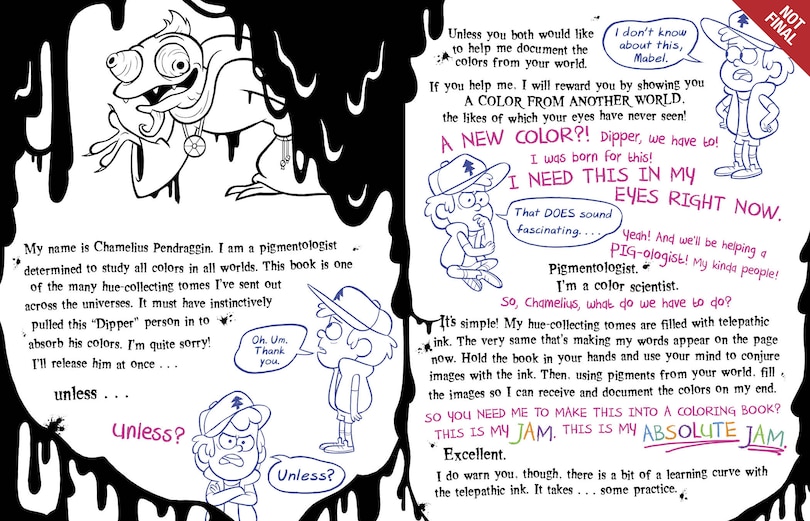 My name is Chamelius Pendraggin. I am a pigmentologist
determined to study all colors in all worlds. This book is one
of the many hue-collecting tomes I've sent out
across the universes. It must have instinctively
pulled this “Dipper” person in to
absorb his colors. I'm quite sorry!
I'll release him at once . . .
Oh. Um.
Thank
you.
unless . . .
Unless?
Unless?
NOT
FINAL
Unless you both would like
to help me document the
colors from your world.
I don't know
about this,
Mabel.
If you help me, I will reward you by showing you
A COLOR FROM ANOTHER WORLD,
the likes of which your eyes have never seen!
A NEW COLOR?! Dipper, we have to!
I was born for this!
I NEED THIS IN MY
EYES RIGHT NOW.
That DOES sound
fascinating. . . .
Yeah! And we'll be helping a
PIG-ologist! My kinda people!
Pigmentologist.
I'm a color scientist.
So, Chamelius, what do we have to do?
It's simple! My hue-collecting tomes are filled with telepathic
ink. The very same that's making my words appear on the page
now. Hold the book in your hands and use your mind to conjure
images with the ink. Then, using pigments from your world, fill
the images so I can receive and document the colors on my end.
SO YOU NEED ME TO MAKE THIS INTO A COLORING BOOK?
THIS IS MY JAM. THIS IS MY ABSOLUTE JAM.
Excellent.
I do warn you, though, there is a bit of a learning curve with
the telepathic ink. It takes . . . some practice.